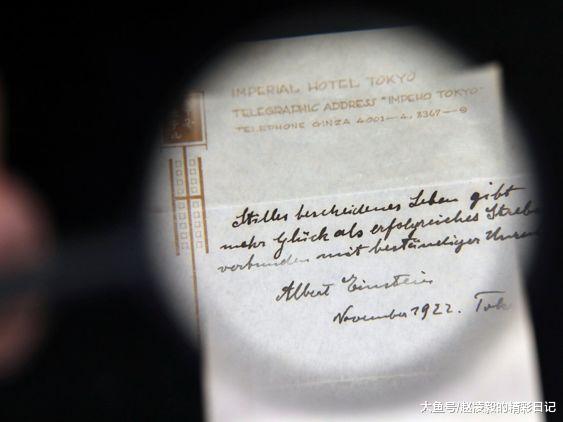 IMPERIAL HOTEL TOKYO
TELEGRAPHIC ADDRESS "IMPEHO TOKYO"
TELEPHONE GINZA 4001—4, 8367—9
Stilles bescheidenes Leben gibt
mehr Glück als erfolgreiches Streb
verbunden mit beständiger Unru
Albert Einstein
November 1922. Tok
大鱼号/赵凌毅的精彩日记